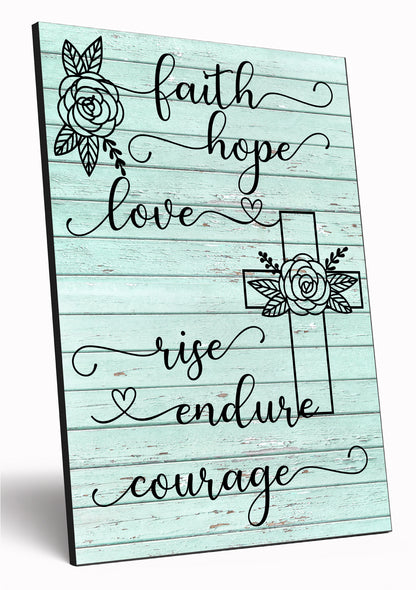 faith
hope
love
rise
endure
courage